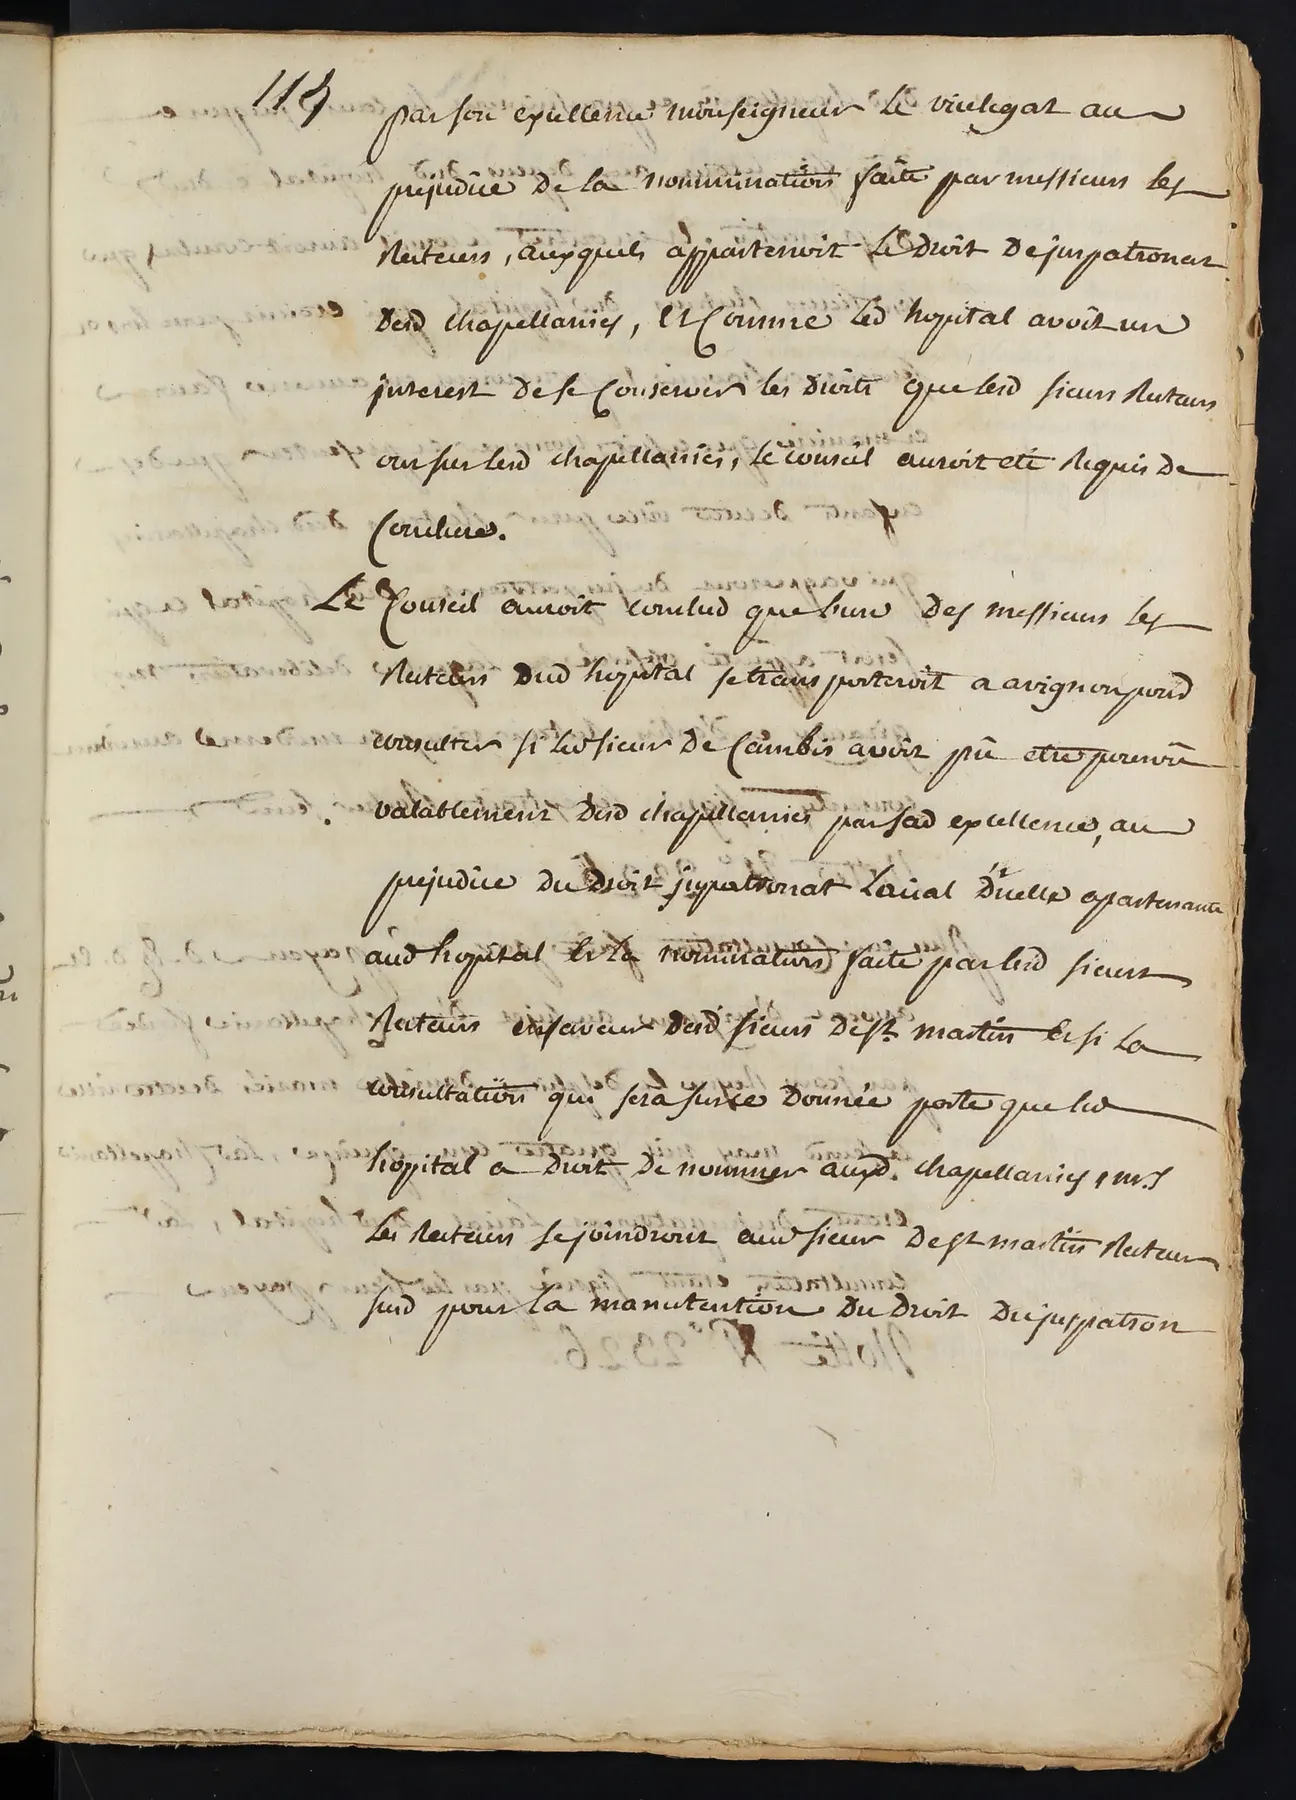 114
par son excellence monseigneur Le vicelegat au
prejudice De La nommination faîte par messieurs les
Recteurs, auxquels appartenoit Le Droit De juspatronat
Desd chapellanies, et Comme Led hopital avoît un
jnterest De se Conserver les Droits que lesd sieurs Recteurs
ont sur lesd chapellanies, Le conseil auroit eté Requis de
Conclure.
Le Conseil auroit conclud que l'un Des messieurs les
Recteurs Dud hopital se transporteroît a avignon pour
consulter si led sieur De Cambis avoît pû etre pourvû
valablement Desd chapellanies par sad excellence, au
prejudice Du Droit juspatronat Laïcal D'icelles apartenante
aud hopital et La nomination faîte par lesd sieurs
Recteurs en faveur Desd sieurs De st. martin et si La
consultation qui sera sur ce Donnée porte que led
hopital a Droit De nommer auxd. chapellanies, mrs
Les Recteurs se joindront aud sieur De st martin Recteur
susd pour La manutention Du Droit De juspatron